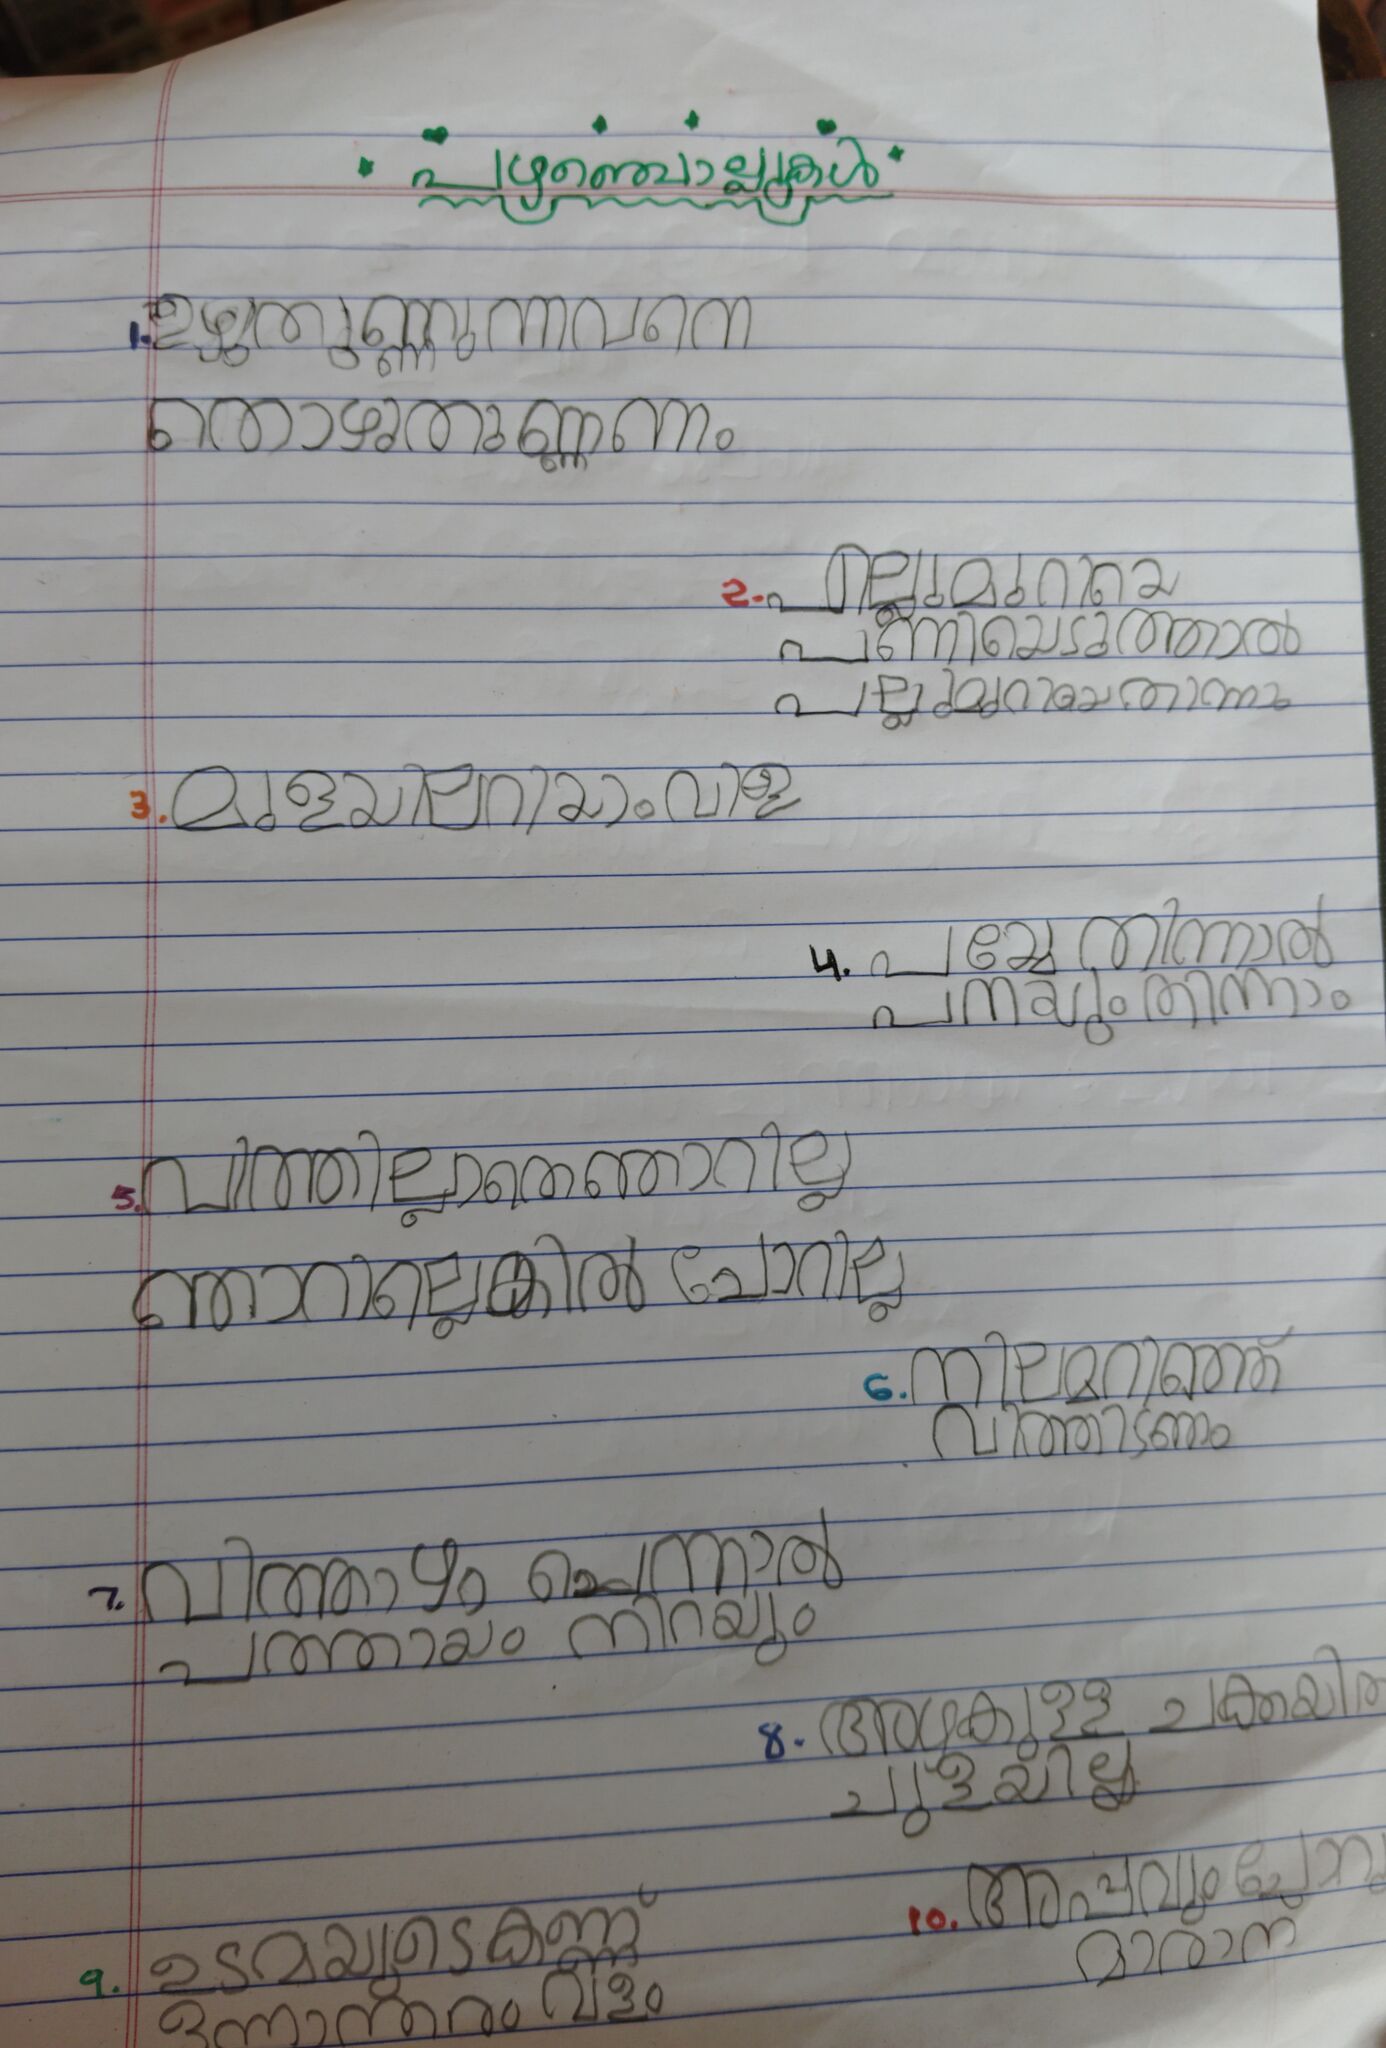 പഴഞ്ചൊല്ലുകൾ
1. ഉഴുതുണ്ണുന്നവനെ
തൊഴുതുണ്ണണം
2. പല്ലുമുറിയെ
പണിയെടുത്താൽ
പല്ലുമുറിയെതിന്നാം
3. മുളയിലറിയാം വിള
4. പയ്യെ തിന്നാൽ
പനയും തിന്നാം
5. വിത്തില്ലാതെ ഞാറില്ല
ഞാറില്ലെങ്കിൽ ചോറില്ല
6. നിലമറിഞ്ഞ്
വിത്തിടണം
7. വിത്താഴം ചെന്നാൽ
പത്തായം നിറയും
8. അഴകുള്ള ചക്കയിൽ
ചുളയില്ല
9. ഉടമയുടെ കണ്ണ്
ഒന്നാന്തരം വളം
10.